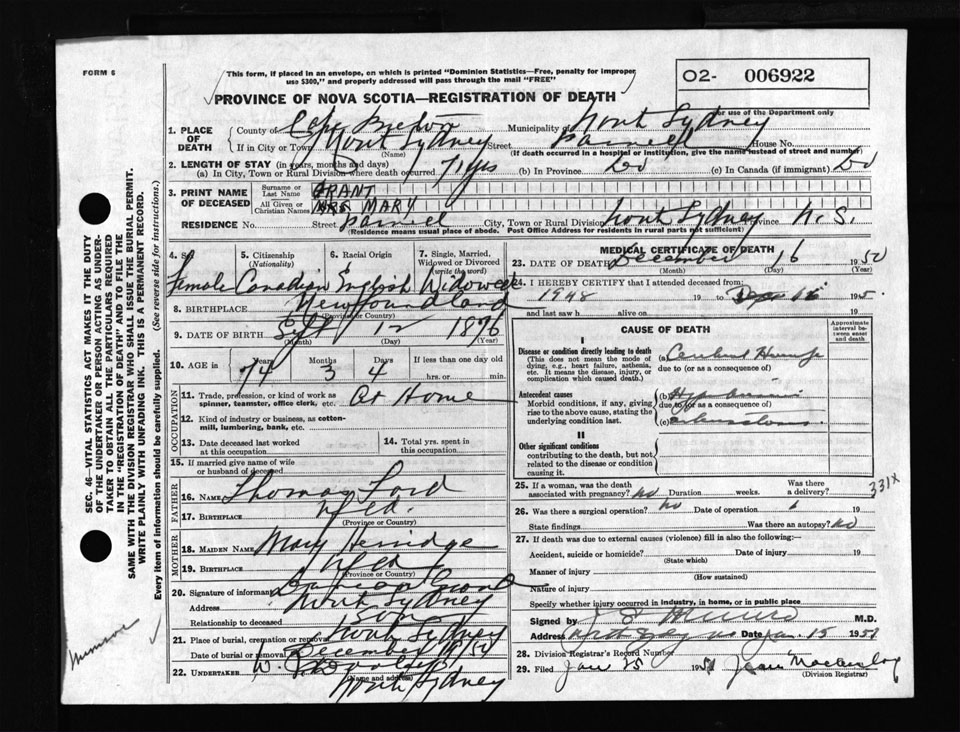 FORM 6
This form, if placed in an envelope, on which is printed "Dominion Statistics—Free, penalty for improper
use $300," and properly addressed will pass through the mail "FREE"
O2- 006922
PROVINCE OF NOVA SCOTIA—REGISTRATION OF DEATH
For use of the Department only
1. PLACE OF DEATH County of Cape Breton Municipality of North Sydney
If in City or Town North Sydney Street House No.
(Name) (If death occurred in a hospital or institution, give the name instead of street and number)
2. LENGTH OF STAY (in years, months and days)
(a) In City, Town or Rural Division where death occurred 71 yrs (b) In Province Do (c) In Canada (if immigrant) Do
3. PRINT NAME OF DECEASED Surname or Last Name GRANT
All Given or Christian Names MRS MARY
RESIDENCE No. Street City, Town or Rural Division North Sydney Province N.S.
(Residence means usual place of abode. Post Office Address for residents in rural parts not sufficient)
4. Sex 5. Citizenship (Nationality) 6. Racial Origin 7. Single, Married, Widowed or Divorced (write the word)
Female Canadian English Widowed
8. BIRTHPLACE Newfoundland
(Province or Country)
9. DATE OF BIRTH Sept 12 1876
(Month) (Day) (Year)
10. AGE in Years Months Days If less than one day old
74 3 4 hrs. or min.
OCCUPATION
11. Trade, profession, or kind of work as spinner, teamster, office clerk, etc. At Home
12. Kind of industry or business, as cotton-mill, lumbering, bank, etc.
13. Date deceased last worked at this occupation
14. Total yrs. spent in this occupation
15. If married give name of wife or husband of deceased
FATHER
16. NAME Thomas Ford
17. BIRTHPLACE Nfld.
(Province or Country)
MOTHER
18. MAIDEN NAME Mary Herridge
19. BIRTHPLACE Nfld
(Province or Country)
20. Signature of informant
Address North Sydney
Relationship to deceased Son
21. Place of burial, cremation or removal North Sydney
Date of burial or removal December 18/50
22. UNDERTAKER W.
(Name and address)
North Sydney
MEDICAL CERTIFICATE OF DEATH
23. DATE OF DEATH December 16 1950
(Month) (Day) (Year)
24. I HEREBY CERTIFY that I attended deceased from:
1948 19 to Dec 16 195
and last saw h alive on 19
CAUSE OF DEATH
Approximate interval between onset and death
I
Disease or condition directly leading to death (a)
(This does not mean the mode of dying, e.g., heart failure, asthenia, etc. It means the disease, injury, or complication which caused death.)
due to (or as a consequence of)
Antecedent causes (b)
Morbid conditions, if any, giving rise to the above cause, stating the underlying condition last.
due to (or as a consequence of)
(c)
II
Other significant conditions
contributing to the death, but not related to the disease or condition causing it.
25. If a woman, was the death associated with pregnancy? no Duration weeks. Was there a delivery?
331X
26. Was there a surgical operation? no Date of operation 19
State findings Was there an autopsy? no
27. If death was due to external causes (violence) fill in also the following:—
Accident, suicide or homicide? Date of injury 19
(State which)
Manner of injury
(How sustained)
Nature of injury
Specify whether injury occurred in industry, in home, or in public place
Signed by Munro M.D.
Address Date Jan. 15 1951
28. Division Registrar's Record Number
29. Filed Jan 25 1951 Jean
(Division Registrar)
SEC. 46—VITAL STATISTICS ACT MAKES IT THE DUTY
OF THE UNDERTAKER OR PERSON ACTING AS UNDER-
TAKER TO OBTAIN ALL THE PARTICULARS REQUIRED
IN THE "REGISTRATION OF DEATH" AND TO FILE THE
SAME WITH THE DIVISION REGISTRAR WHO SHALL ISSUE THE BURIAL PERMIT.
WRITE PLAINLY WITH UNFADING INK. THIS IS A PERMANENT RECORD.
Every item of information should be carefully supplied. (See reverse side for instructions.)
Munroe